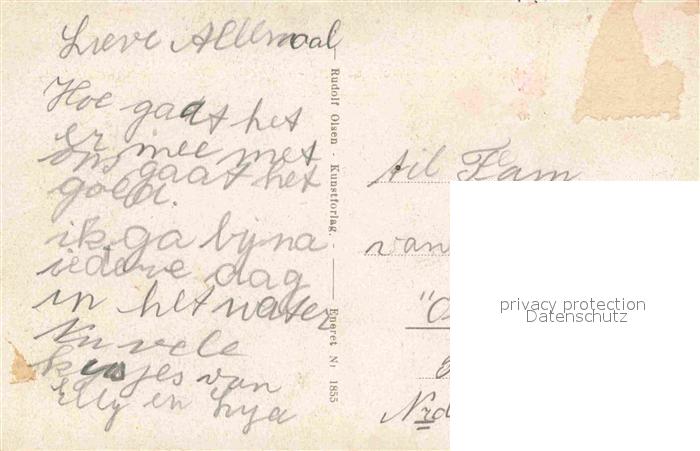 Lieve Allemaal
Hoe gaat het
er mee met
ons gaat het
goed.
ik ga bijna
iedere dag
in het water
Nu vele
kusjes van
Elly en
Rudolf Olsen - Kunstforlag.
Eneret Nr 1855
til Fam
van
"O
Nrd
privacy protection
Datenschutz